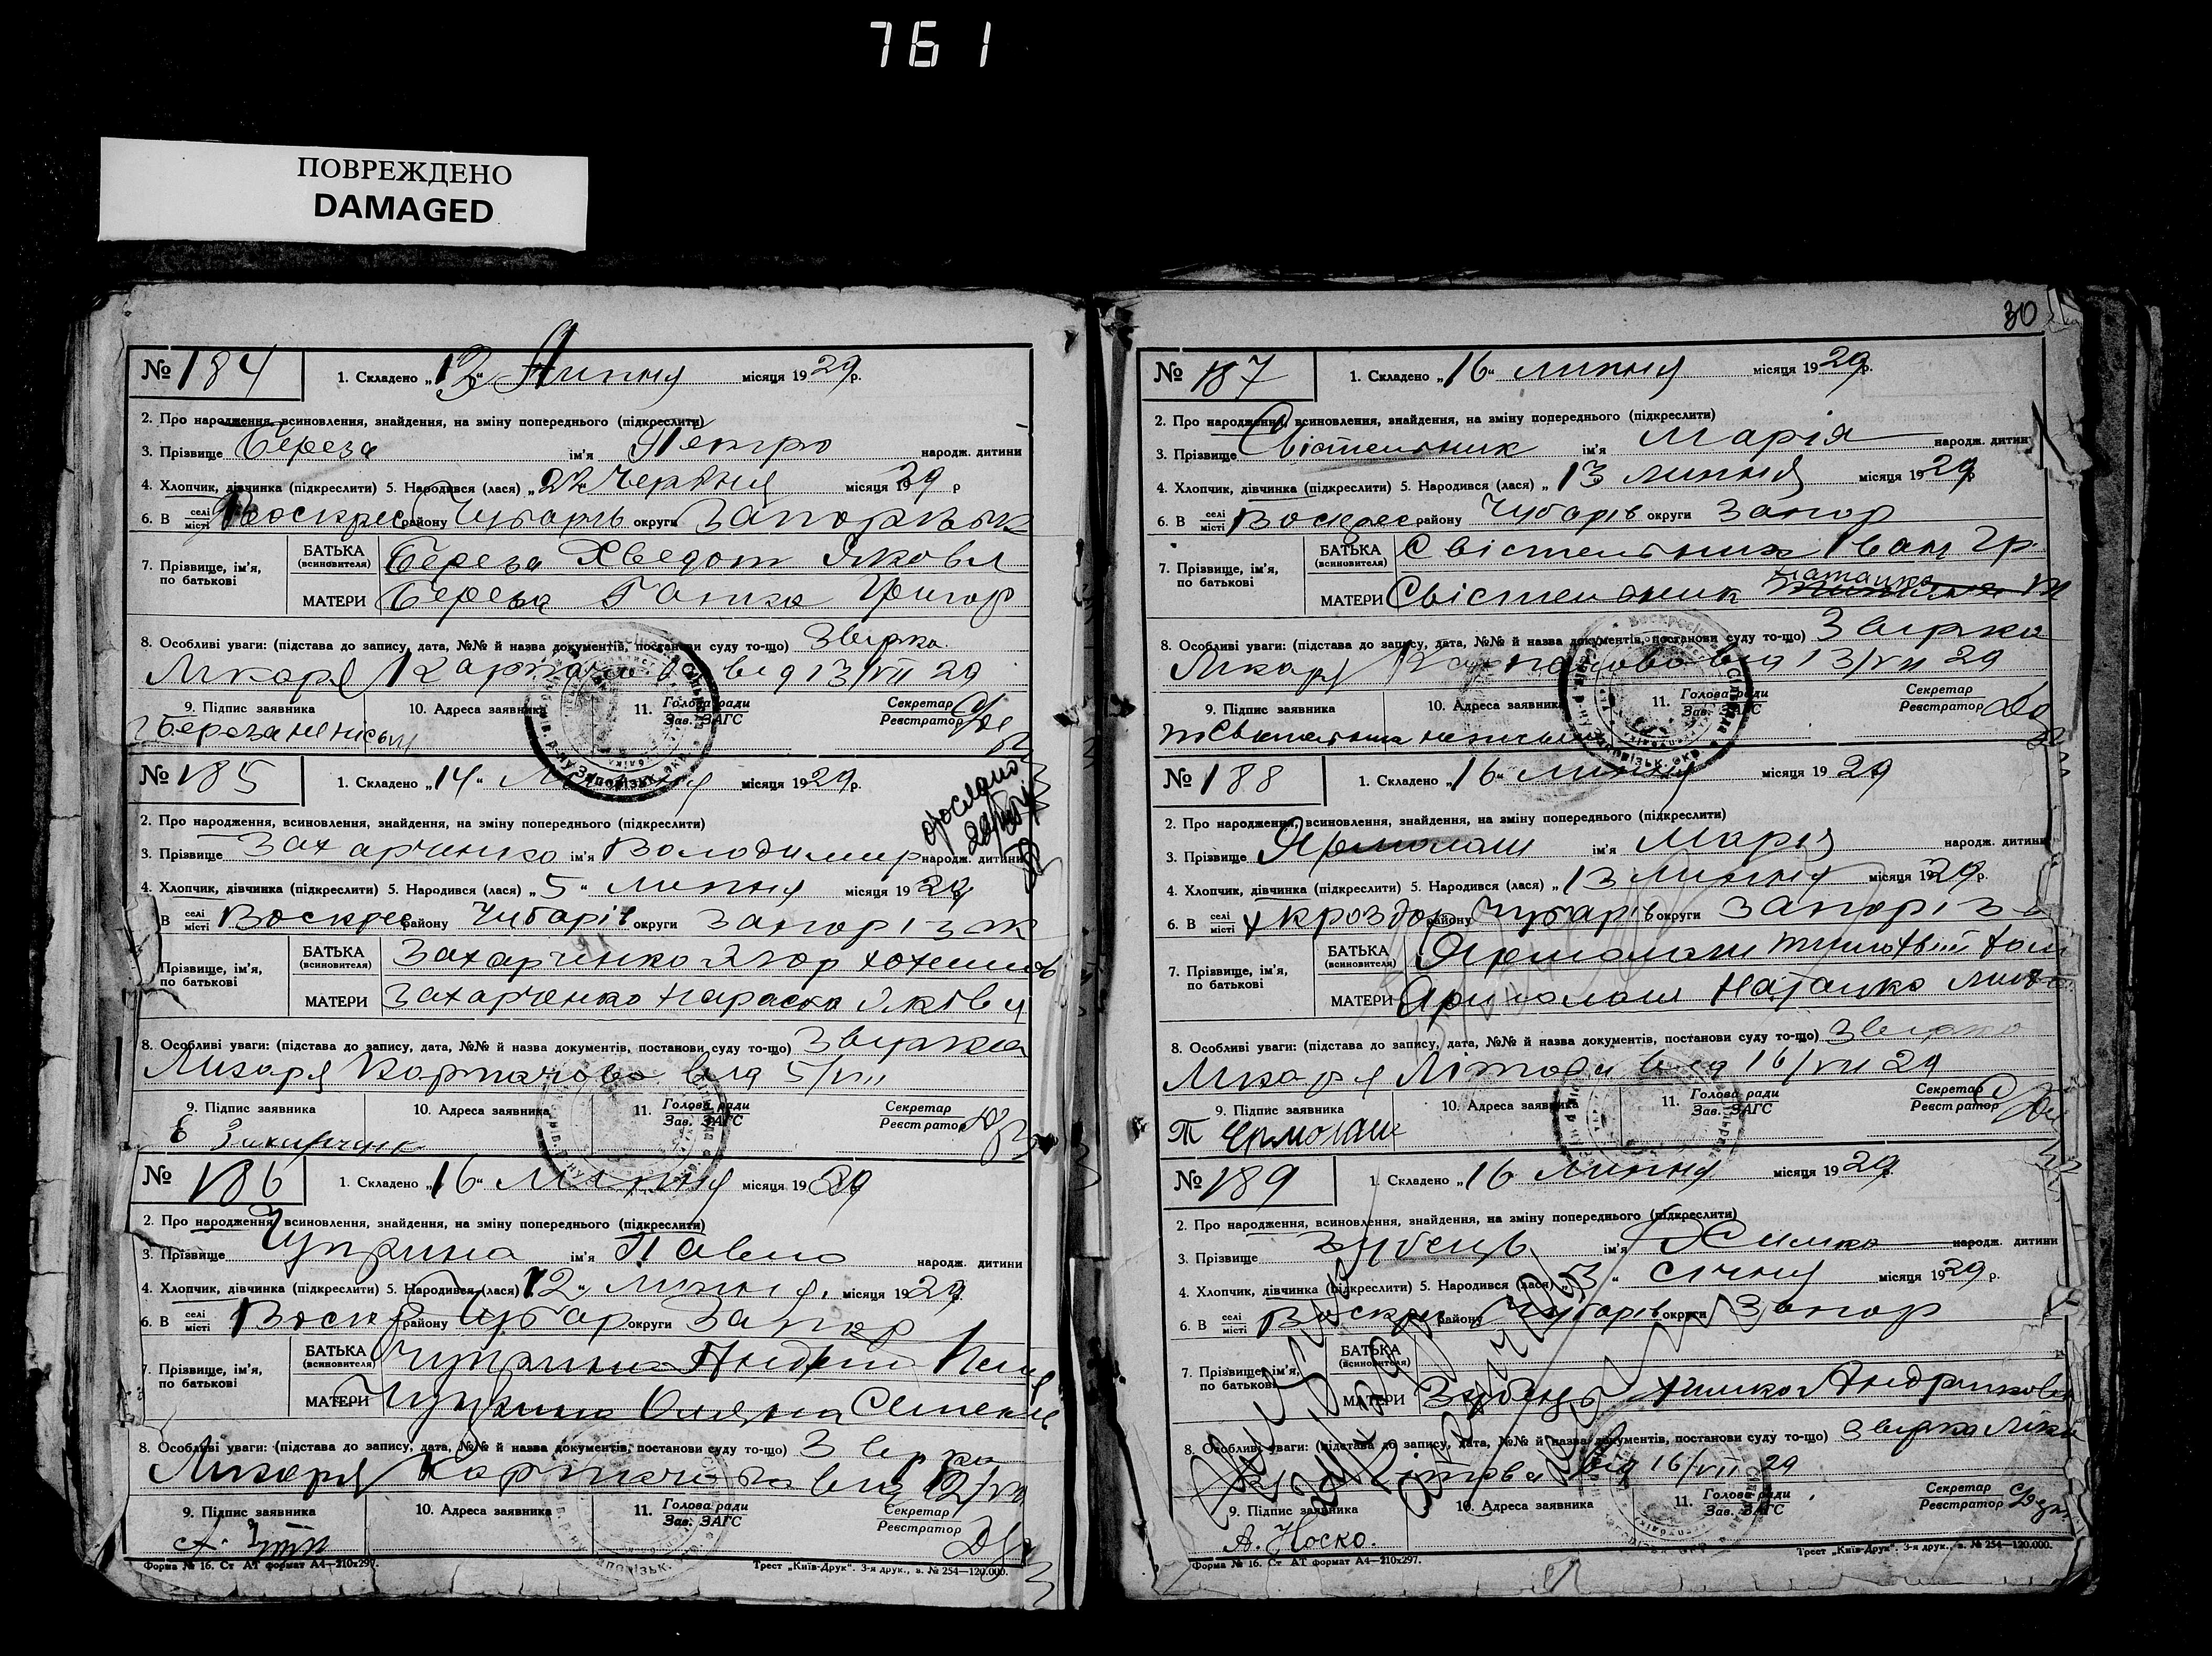 761
ПОВРЕЖДЕНО
DAMAGED
№ 184 1. Складено „13“ Липня місяця 1929 р.
2. Про народження, всиновлення, знайдення, на зміну попереднього (підкреслити)
3. Прізвище Береза ім'я Петро народж. дитини
4. Хлопчик, дівчинка (підкреслити) 5. Народився (лася) „22“ Червня місяця 1929 р
6. В селі місті Воскрес району Чубарів округи
7. Прізвище, ім'я, по батькові
БАТЬКА (всиновителя) Береза Хведот Яковл
МАТЕРИ Береза Ганка Григор
8. Особливі уваги: (підстава до запису, дата, №№ й назва документів, постанови суду то-що) Звірка
Лікаря від 13/VII 29
9. Підпис заявника 10. Адреса заявника 11. Голова ради Зав. ЗАГС Секретар Реєстратор
Береза
№ 185 1. Складено „14“ Липня місяця 1929 р.
2. Про народження, всиновлення, знайдення, на зміну попереднього (підкреслити)
3. Прізвище Захарченко ім'я Володимир народж. дитини
4. Хлопчик, дівчинка (підкреслити) 5. Народився (лася) „5“ липня місяця 1929
В селі місті Воскрес району Чубарів округи Запоріз
Прізвище, ім'я, по батькові
БАТЬКА (всиновителя) Захарченко Ягор
МАТЕРИ Захарченко Параска Яківл
8. Особливі уваги: (підстава до запису, дата, №№ й назва документів, постанови суду то-що) Звірка
Лікаря Карпачова від 5/VII
9. Підпис заявника 10. Адреса заявника 11. Голова ради Зав. ЗАГС Секретар Реєстратор
Е Захарченк
№ 186 1. Складено „16“ Липня місяця 1929
2. Про народження, всиновлення, знайдення, на зміну попереднього (підкреслити)
3. Прізвище Чуприна ім'я Павло народж. дитини
4. Хлопчик, дівчинка (підкреслити) 5. Народився (лася) 12“ липня місяця 1929
6. В селі місті Воскр району Чубар округи Запор
7. Прізвище, ім'я, по батькові
БАТЬКА (всиновителя) Чуприна Андрій
МАТЕРИ Чуприна Оляна Семенів
8. Особливі уваги: (підстава до запису, дата, №№ й назва документів, постанови суду то-що) Звірка
Лікаря Карпачова від 12/VII
9. Підпис заявника 10. Адреса заявника 11. Голова ради Зав. ЗАГС Секретар Реєстратор
А. Чуп
Форма № 16. Ст АТ формат А4—210х297. Трест „Київ-Друк“. 3-я друк., з. № 254—120.000.
30
№ 187 1. Складено „16“ липня місяця 1929 р.
2. Про народження, всиновлення, знайдення, на зміну попереднього (підкреслити)
3. Прізвище Свістельник ім'я Марія народж. дитин
4. Хлопчик, дівчинка (підкреслити) 5. Народився (лася) „13 липня місяця 1929
6. В селі місті Воскрес району Чубарів округи Запор
7. Прізвище, ім'я, по батькові
БАТЬКА (всиновителя) Свістельник Іван Гр
МАТЕРИ Свістельник Наталка
8. Особливі уваги: (підстава до запису, дата, №№ й назва документів, постанови суду то-що) Звірка
Лікаря Карпачова від 13/VII 29
9. Підпис заявника 10. Адреса заявника 11. Голова ради Зав. ЗАГС Секретар Реєстратор
№ 188 1. Складено „16“ липня місяця 1929
2. Про народження, всиновлення, знайдення, на зміну попереднього (підкреслити)
3. Прізвище Ярмолаш ім'я Марія народж. дитини
4. Хлопчик, дівчинка (підкреслити) 5. Народився (лася) „13 липня місяця 1929 р.
6. В селі місті району Чубарів округи Запоріз
7. Прізвище, ім'я, по батькові
БАТЬКА (всиновителя) Ярмолаш
МАТЕРИ Ярмолаш Наталка
8. Особливі уваги: (підстава до запису, дата, №№ й назва документів, постанови суду то-що) Звірка
Лікаря від 16/VII 29
9. Підпис заявника 10. Адреса заявника 11. Голова ради Зав. ЗАГС Секретар Реєстратор
Т Ермолаш
№ 189 1. Складено „16 липня місяця 1929
2. Про народження, всиновлення, знайдення, на зміну попереднього (підкреслити)
3. Прізвище Зубець ім'я Химка народж. дитини
4. Хлопчик, дівчинка (підкреслити) 5. Народився (лася) „ “ січня місяця 1929 р.
6. В селі місті Воскр району Чубарів округи Запор
7. Прізвище, ім'я, по батькові
БАТЬКА (всиновителя)
МАТЕРИ Зубець Химка
8. Особливі уваги: (підстава до запису, дата, №№ й назва документів, постанови суду то-що) Звірка Ліка
від 16/VII 29
9. Підпис заявника 10. Адреса заявника 11. Голова ради Зав. ЗАГС Секретар Реєстратор
А. Носко.
Форма № 16. Ст АТ формат А4—210х297. Трест „Київ-Друк“. 3-я друк., з. № 254—120.000.